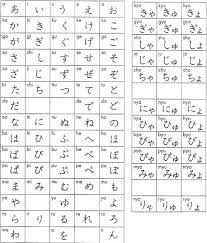 a あ i い u う e え o お
ka か ki き ku く ke け ko こ
ga が gi ぎ gu ぐ ge げ go ご
sa さ shi し su す se せ so そ
za ざ ji じ zu ず ze ぜ zo ぞ
ta た chi ち tsu つ te て to と
da だ de で do ど
na な ni に nu ぬ ne ね no の
ha は hi ひ fu ふ he へ ho ほ
ba ば bi び bu ぶ be べ bo ぼ
pa ぱ pi ぴ pu ぷ pe ぺ po ぽ
ma ま mi み mu む me め mo も
ya や yu ゆ yo よ
ra ら ri り ru る re れ ro ろ
wa わ を ん
kya きゃ kyu きゅ kyo きょ
gya ぎゃ gyu ぎゅ gyo ぎょ
sha しゃ shu しゅ sho しょ
ja じゃ ju じゅ jo じょ
cha ちゃ chu ちゅ cho ちょ
nya にゃ nyu にゅ nyo にょ
hya ひゃ hyu ひゅ hyo ひょ
bya びゃ byu びゅ byo びょ
pya ぴゃ pyu ぴゅ pyo ぴょ
mya みゃ myu みゅ myo みょ
rya りゃ ryu りゅ ryo りょ